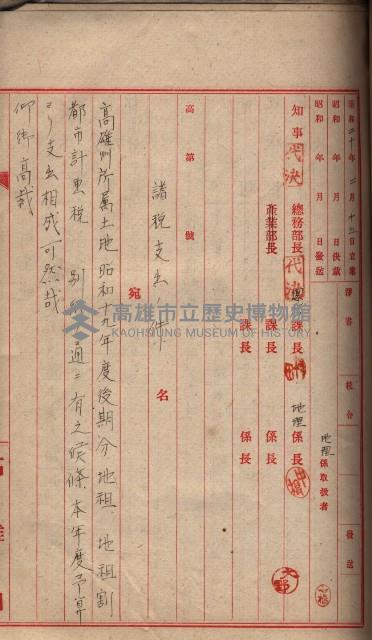 昭和二十年二月十五日立案
昭和 年 月 日決裁
昭和 年 月 日發送
淨書
校合
發送
地理係取扱者
知事
代決
總務部長
代決
課長
地理係長
產業部長
課長
係長
課長
係長
高 第 號
諸税支出ノ件
宛名
高雄州所屬土地昭和十九年度後期分地租、地租割
都市計画税 別 通ニ有之候條、本年度予算
ヨリ支出相成可然哉
仰御高裁
高雄市立歷史博物館
KAOHSIUNG MUSEUM OF HISTORY